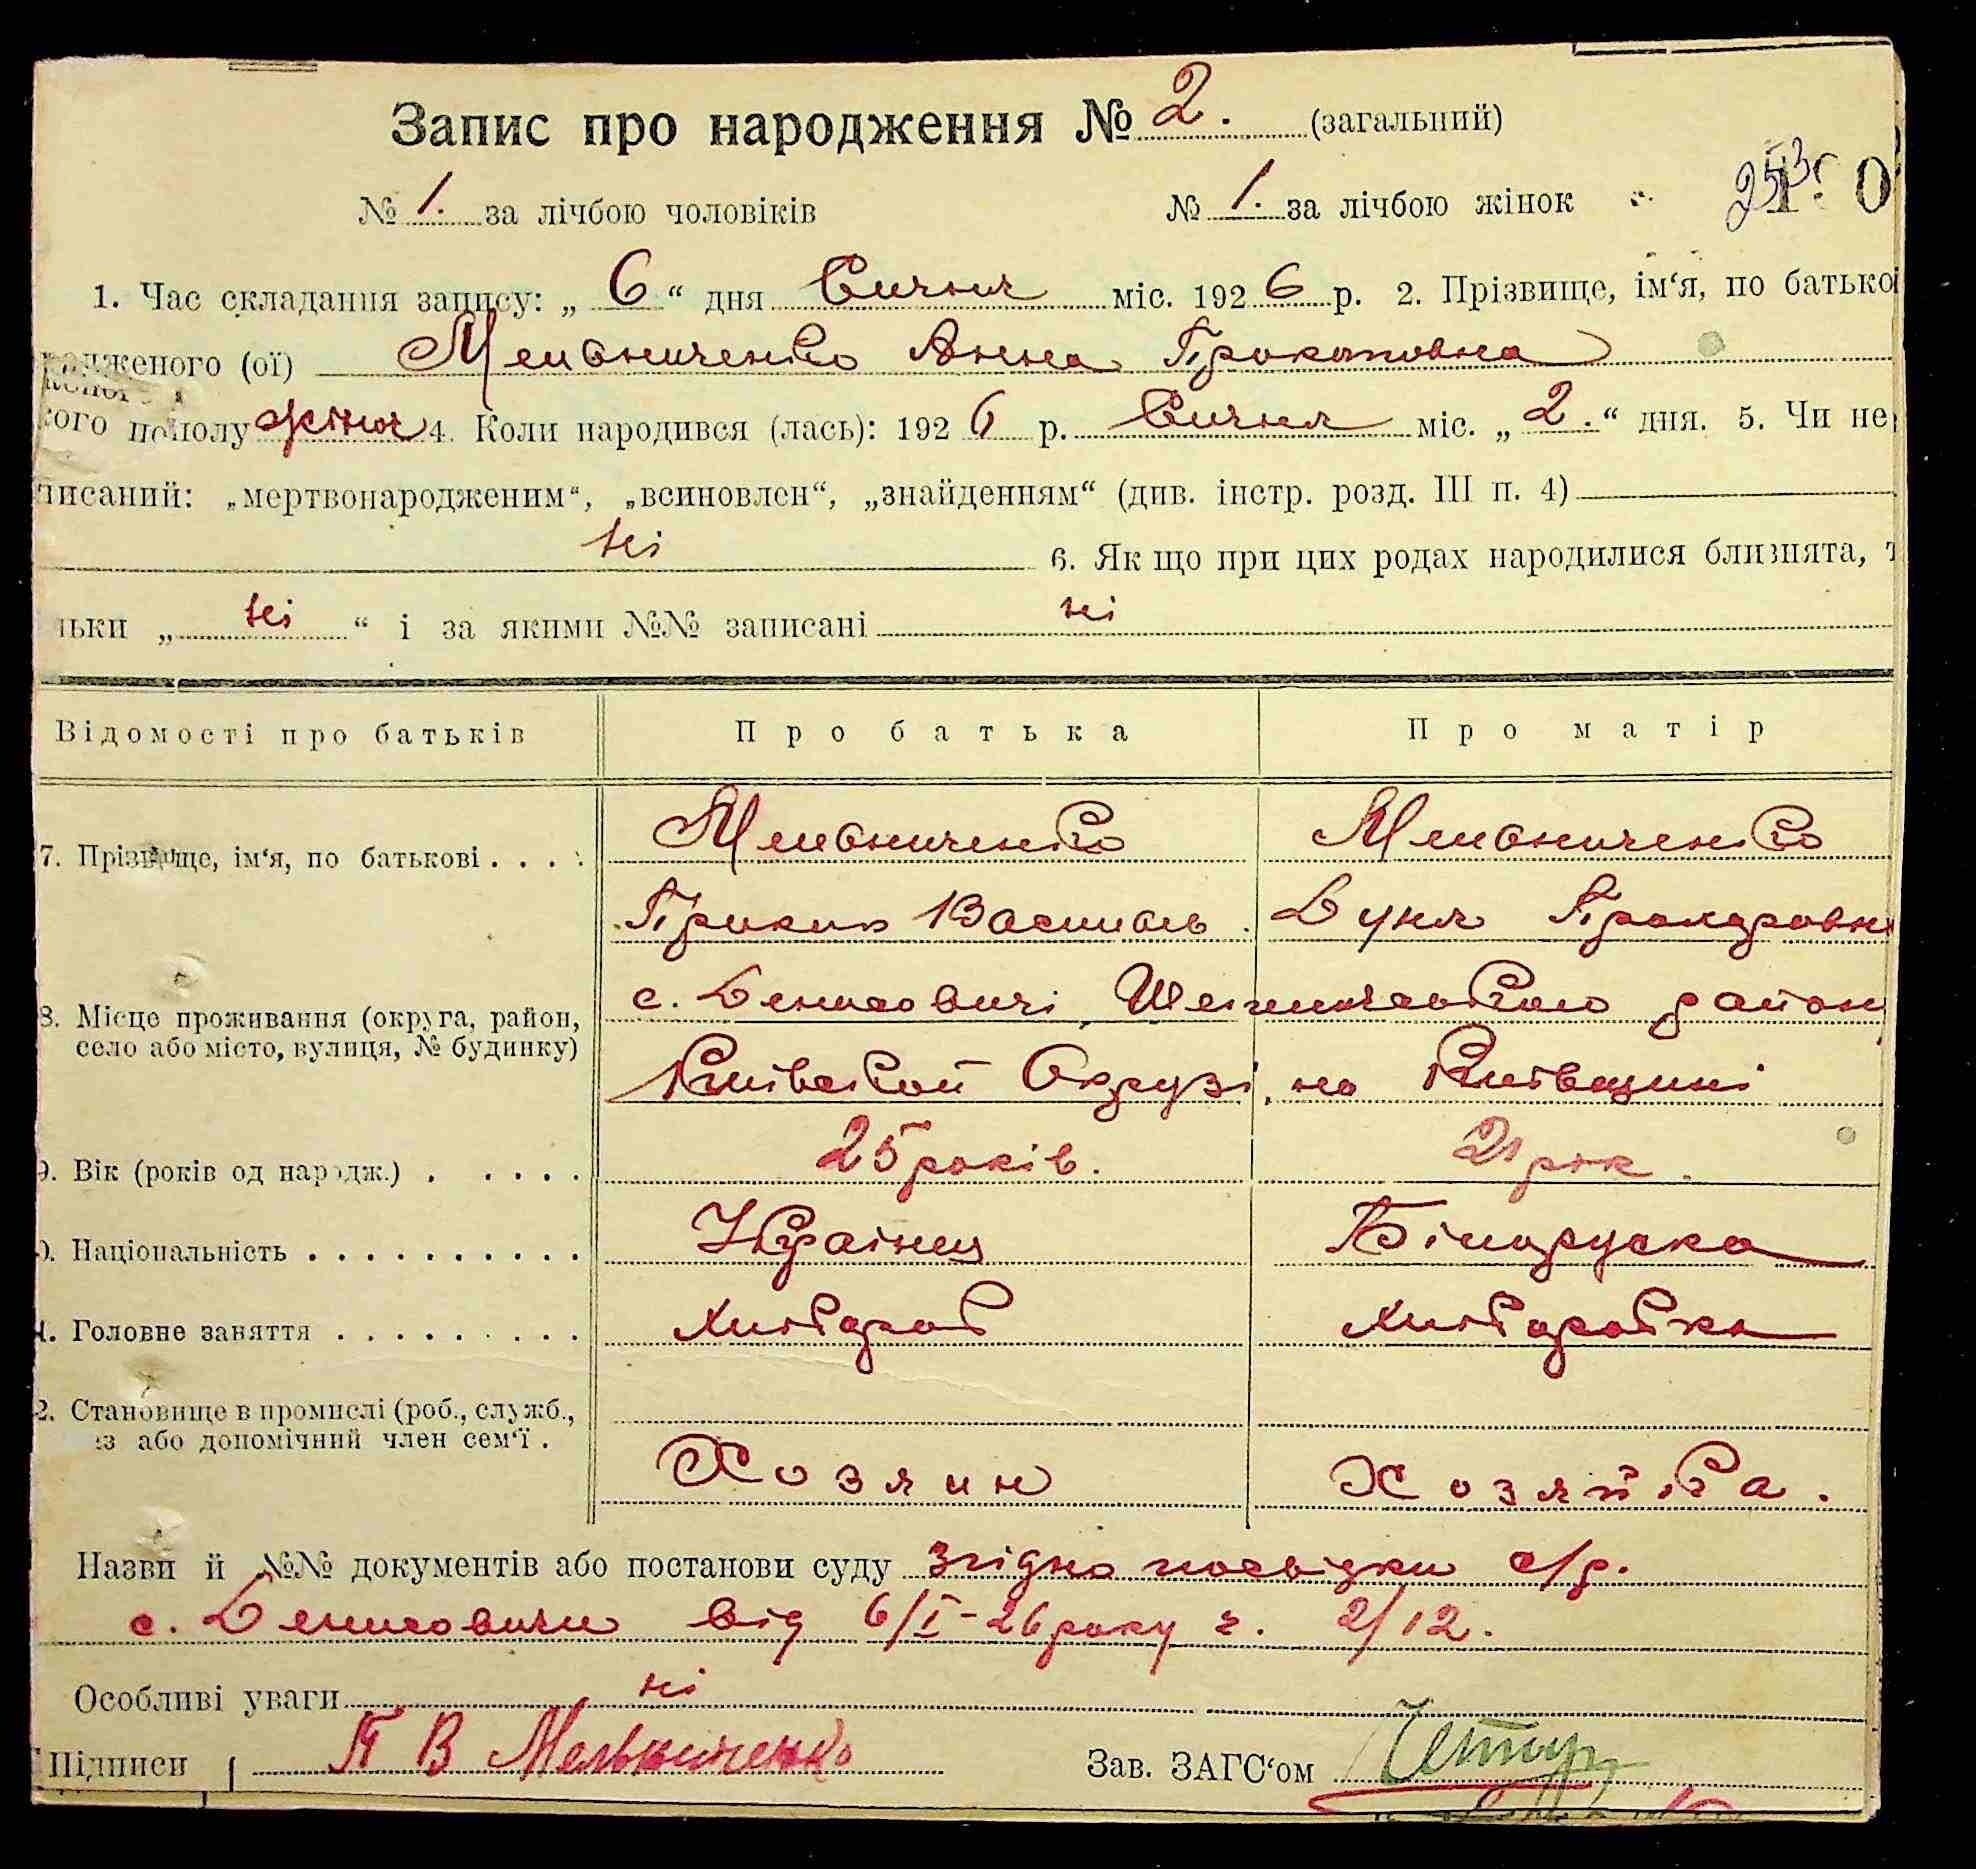 Запис про народження № 2. (загальний)
№ 1. за лічбою чоловіків № 1. за лічбою жінок 253
1. Час складання запису: „ 6 “ дня Січня міс. 1926 р. 2. Прізвище, ім‘я, по батькові
родженого (ої) Мельниченко Анна Прокоповна
кого полу жіноч 4. Коли народився (лась): 1926 р. Січня міс. „ 2. “ дня. 5. Чи не
писаний: „мертвонародженим“, „всиновлен“, „знайденням“ (див. інстр. розд. III п. 4)
ні 6. Як що при цих родах народилися близнята, т
льки „ ні “ і за якими №№ записані ні
Відомості про батьків Про батька Про матір
7. Прізвище, ім‘я, по батькові . . . . Мельниченко Мельниченко
Прокип Василь Дуня
8. Місце проживання (округа, район, село або місто, вулиця, № будинку) с. Денисовичі, району
Київской Окрузі, на Київщині
9. Вік (років од народж.) . . . . . 25 років. 21 рік.
0. Національність . . . . . . . . . . Українец Білоруска
1. Головне заняття . . . . . . . . . Хлібороб Хліборобка
2. Становище в промислі (роб., служб.,
аз або допомічний член сем‘ї . Хозяин Хозяйка.
Назви й №№ документів або постанови суду Згідно посвідки с/р.
с. Денисовичи від 6/I-26 року г. 2/12.
Особливі уваги ні
Підписи П В Мельниченко Зав. ЗАГС‘ом